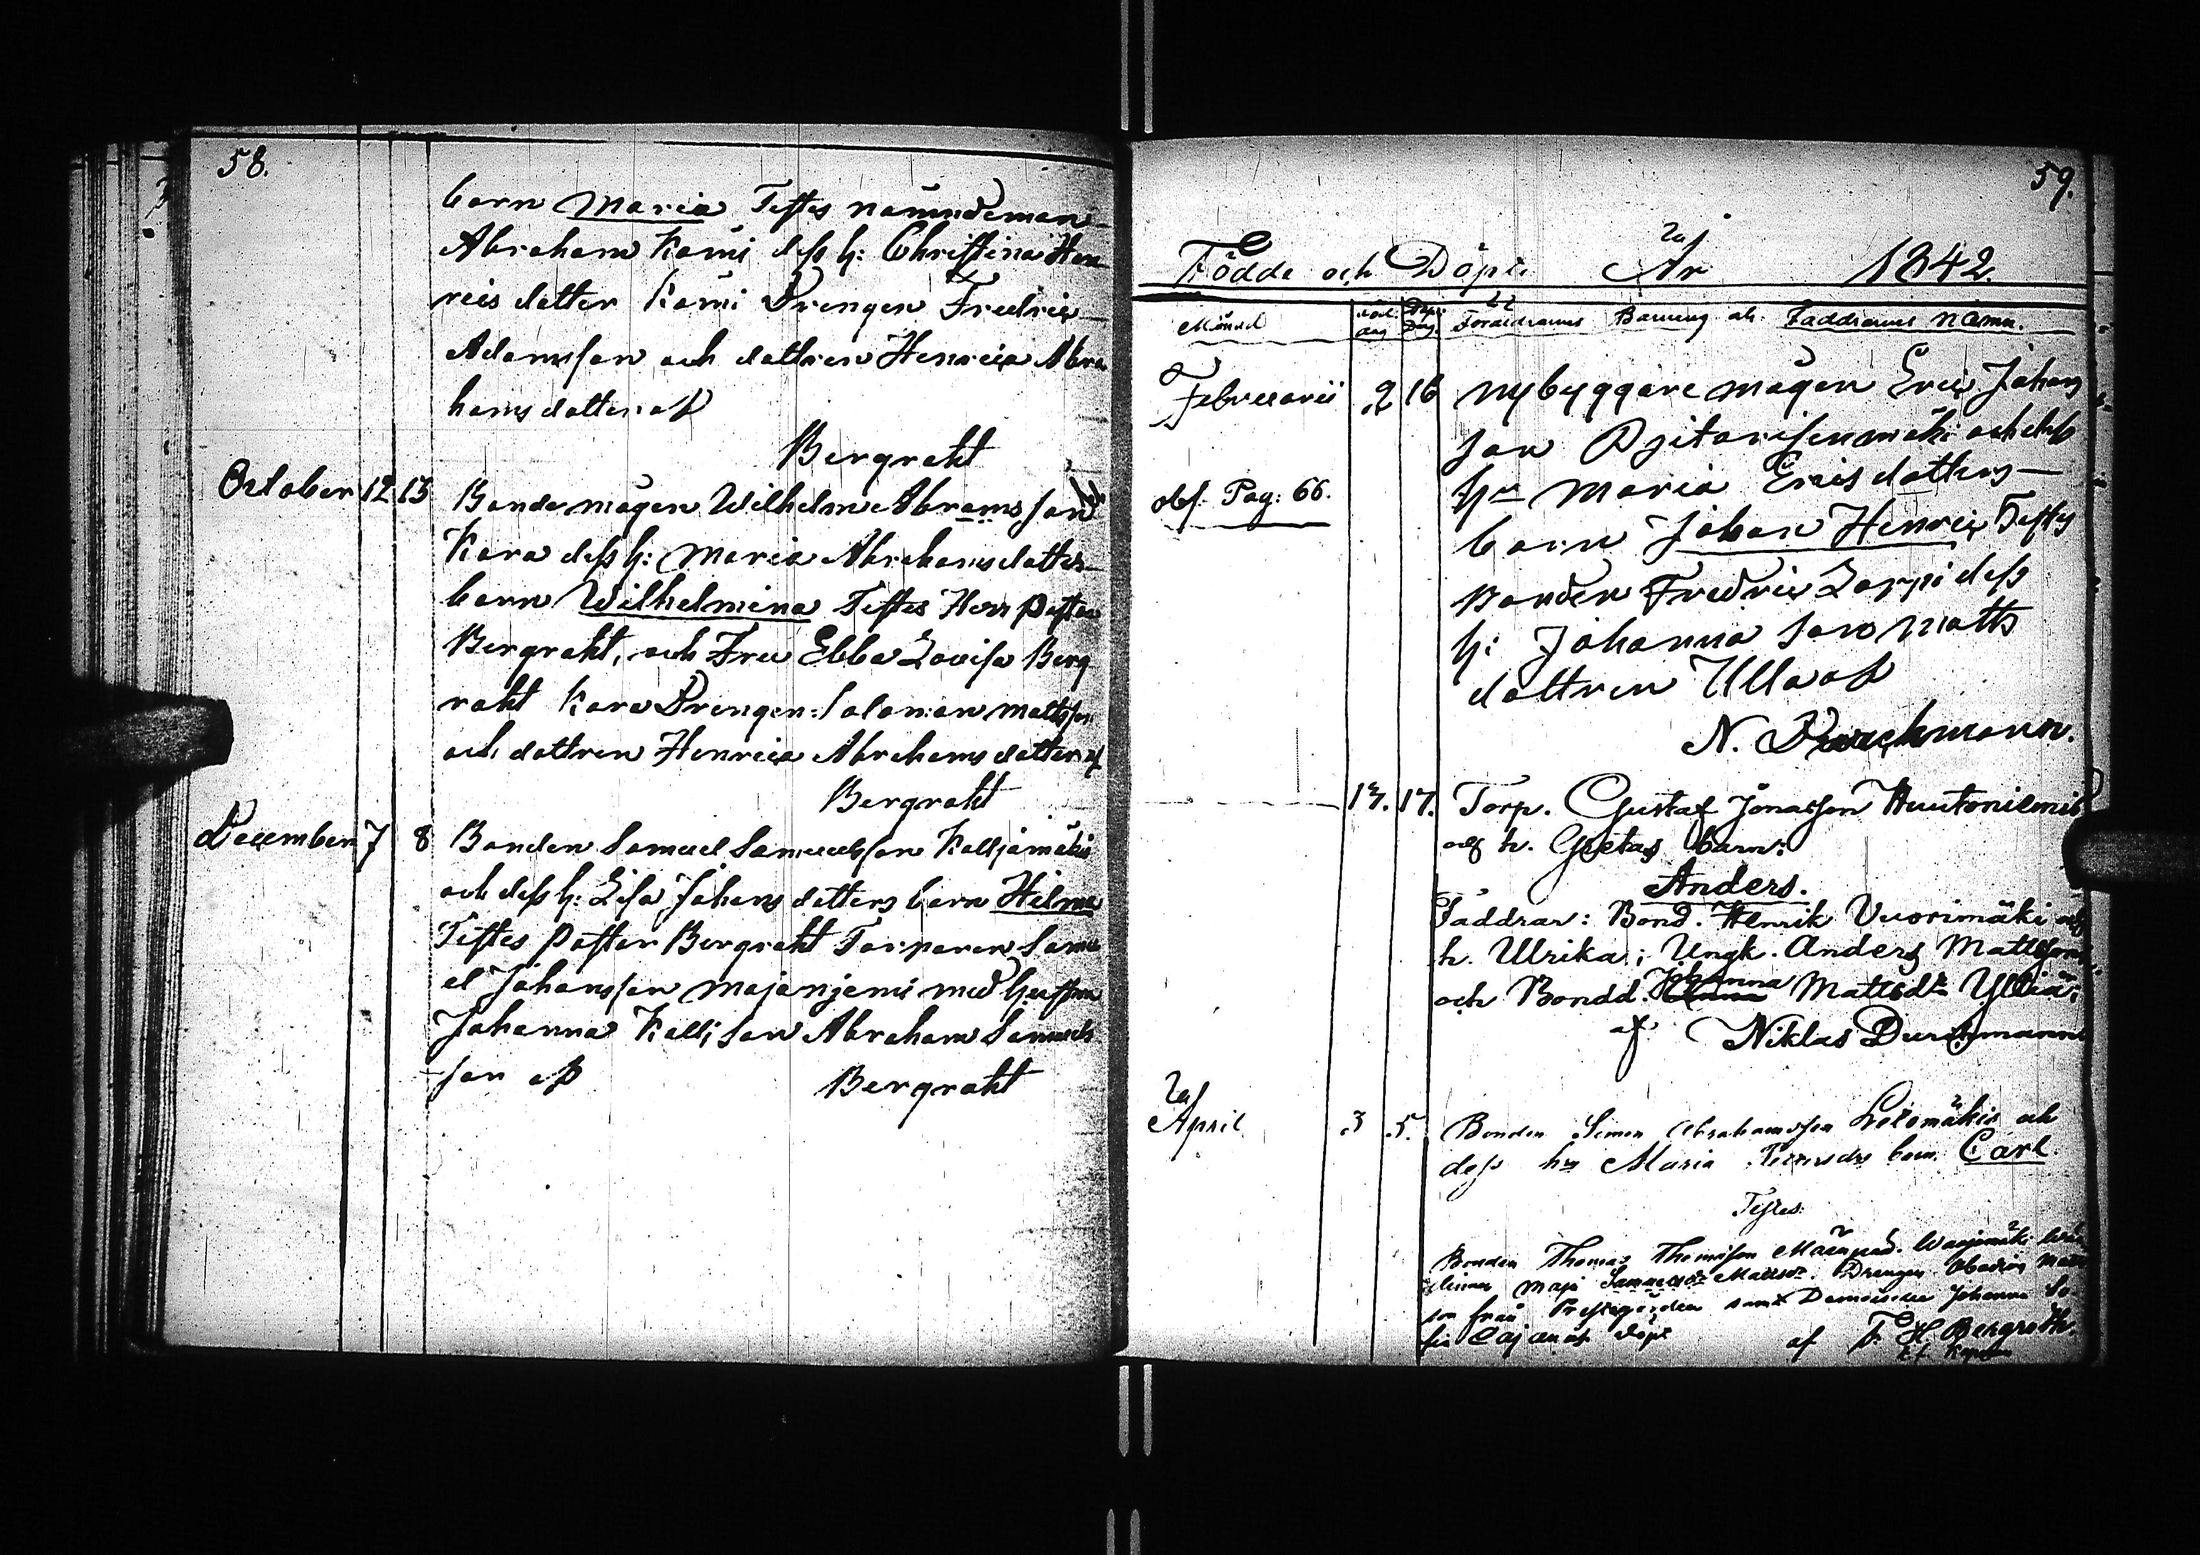 58.
barn Maria Testes nämndeman
Abraham Kami dess h: Christina Hen
rics dotter Kami Drengen Fredric
Adamsson och dottren Henrica Abra
hams dotter af
Bergroht
October 12 13 Bonde mågen Wilhelm Abramsson
Kara dess h: Maria Abrahams dotters
barn Wilhelmina Testes Herr Pastor
Bergroht, och Fru Ebba Lovisa Berg
roht Kara Drengen Salomon Mattsson
och dottren Henrica Abrahams dotter af
Bergroht
December 7 8 Bonden Samuel Samuelsson Kalljomäki
och dess h: Lisa Johans dotters barn Hilma
Testes Pastor Bergroht Torparen Samu
el Johansson Majanjemi med hustru
Johanna Kalli, son Abraham Samuels
son af Bergroht
59.
Födde och Döpte År 1842.
Månad Föd. dag Döpt Dag. Föräldrarnes Barnens och Faddrarnes namn.
Februarii 2 16 Nybyggare mågen Eric Johans
son och dess
hu Maria Erics dotters
obs. Pag: 66.
barn Johan Henric Testes
Bonden Fredric Lappi dess
h: Johanna samt Matts
dottren Ulla af
N. Durchmann.
13. 17. Torp. Gustaf Jonasson Huutoniemi
och h. Gretas barn:
Anders.
Faddrar: Bond. Henrik Vuorimäki och
h. Ulrika; Ungk. Anders Mattsson
och Bondd. Johanna Mattsdr
af Niklas Durchmann
April 3 5. Bonden Simon Abrahamsson Leilomäkis och
dess hu Maria barn Carl.
Testes:
Bonden Thomas Thomasson
Maja Samuelsdr Mattsdr. Drengen
son från Prestgården samt Demoiselle Johanna So-
fia Cajanus döpt af F. H. Bergroth.